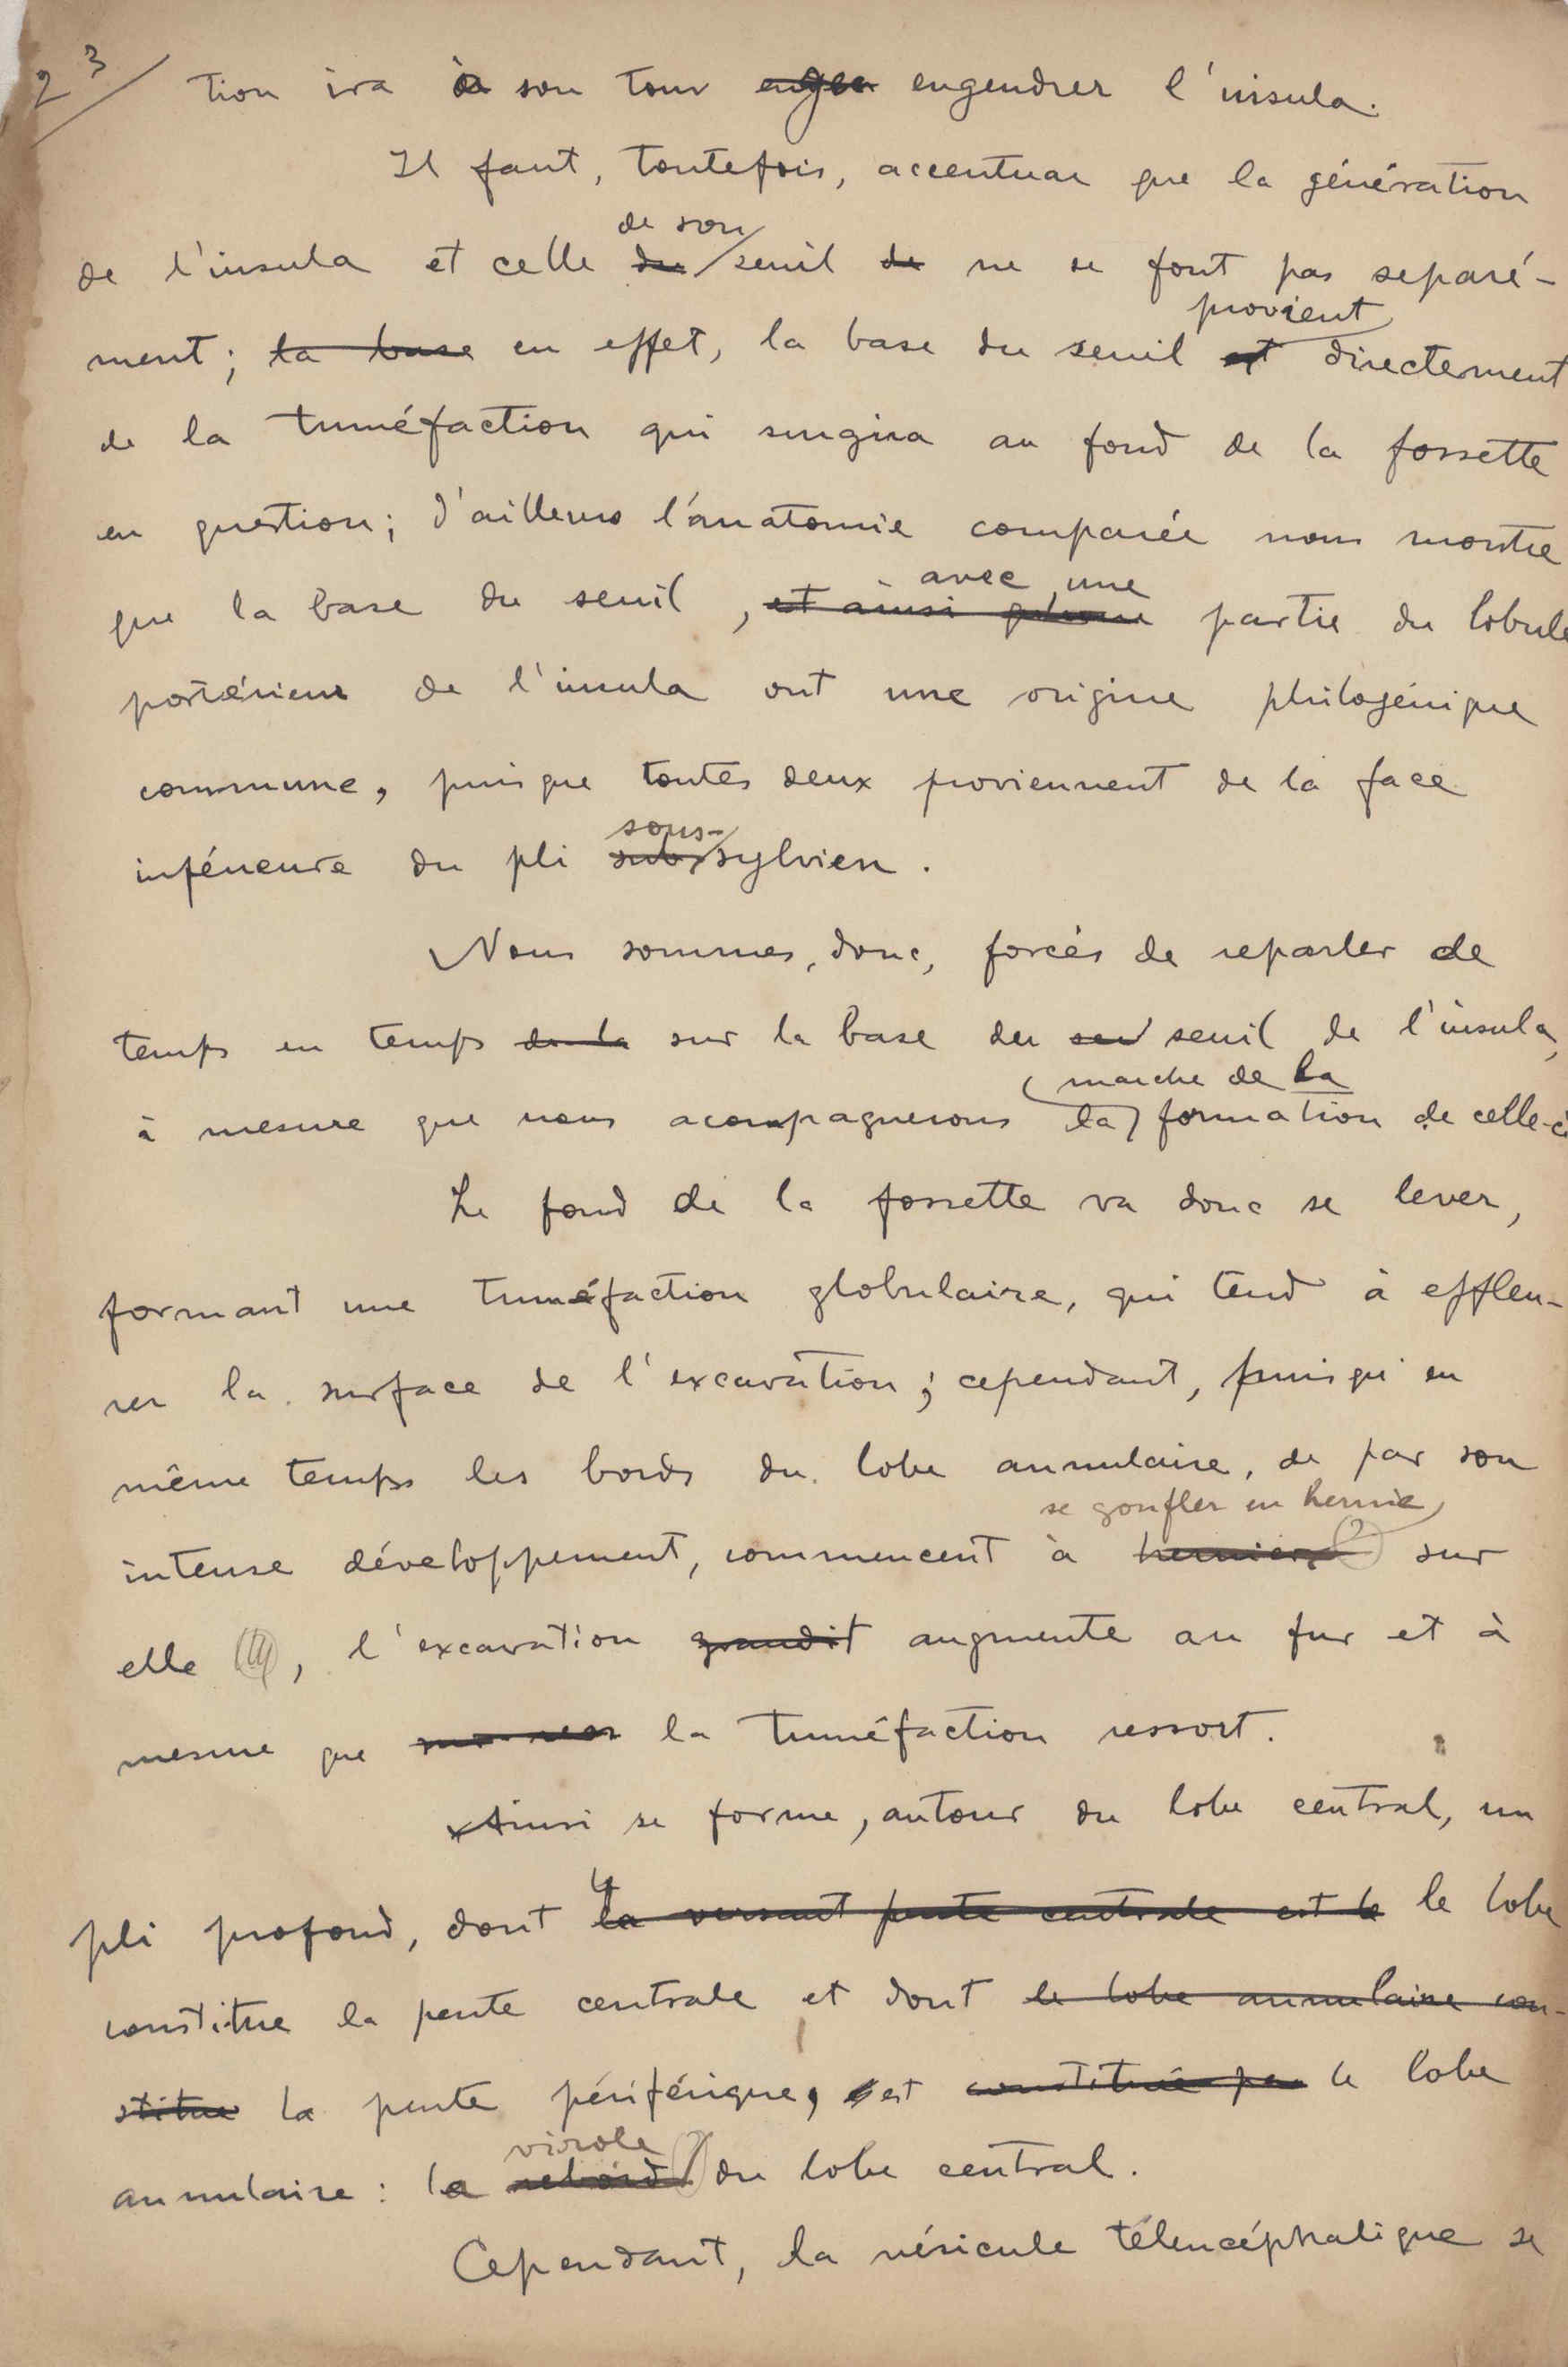 23/ tion ira à son tour engendrer l'insula.
Il faut, toutefois, accentuar que la génération
de son
de l'insula et celle du seuil de ne se font pas separé-
provient
ment; la base en effet, la base du seuil est directement
de la tuméfaction qui surgira au fond de la fossette
en question; d'ailleurs l'anatomie comparée nous montre
avec une
que la base du seuil, et ainsi partie du lobule
postérieur de l'insula ont une origine philogénique
commune, puisque toutes deux proviennent de la face
sous-
inférieure du pli sub-sylvien.
Nous sommes, donc, forcés de reparler de
temps en temps de la sur la base du seu seuil de l'insula,
marche de la
à mesure que nous acompagnerons la formation de celle-ci
Le fond de la fossette va donc se lever,
formant une tuméfaction globulaire, qui tend à effleu-
rer la surface de l'excavation; cependant, puisqu'en
même temps les bords du lobe annulaire, de par son
se gonfler en hernie
intense développement, commencent à hernier (?) sur
elle, l'excavation grandit augmente au fur et à
mesure que la tuméfaction ressort.
Ainsi se forme, autour du lobe central, un
pli profond, dont la versant pente centrale est le le lobe
constitue la pente centrale et dont le lobe annulaire con-
stitue la pente périférique, est constituée par le lobe
virole
annulaire: la rebord (?) du lobe central.
Cependant, la vésicule télencéphalique se